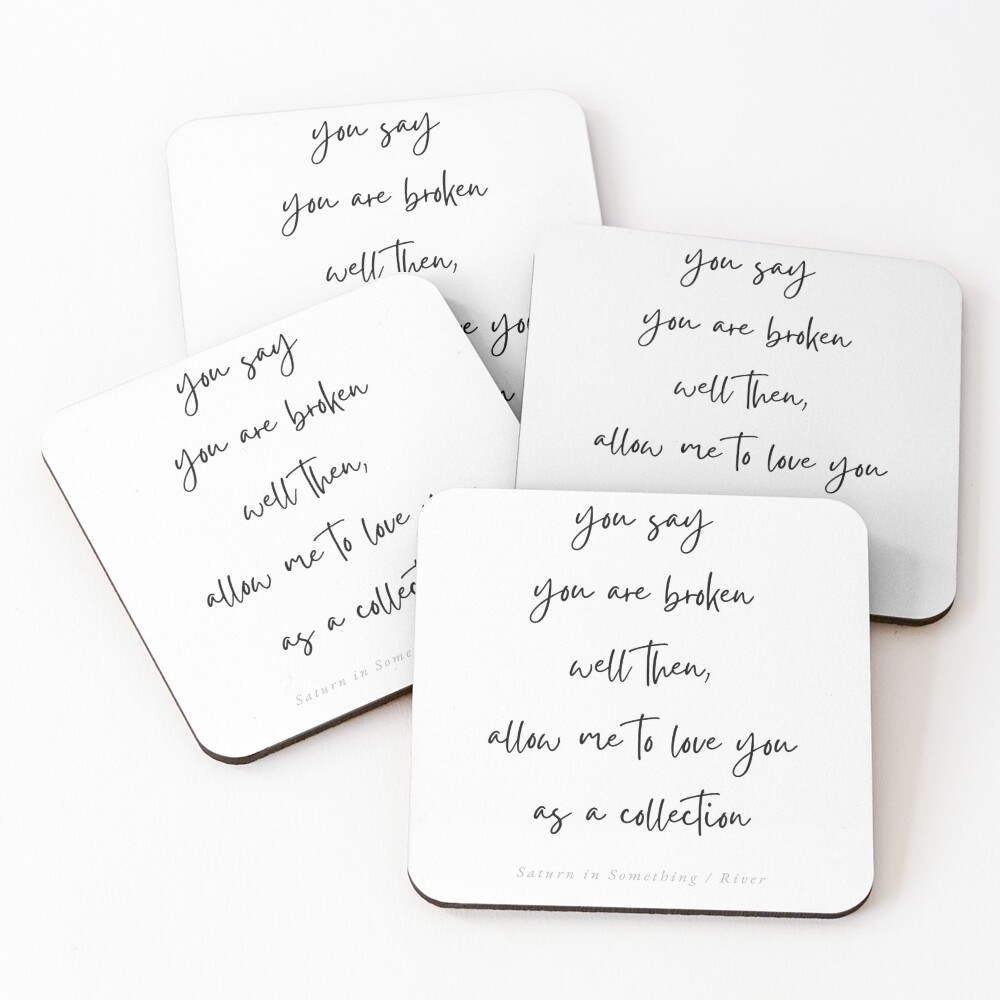 you say
you are broken
well then,
e you
you say
you are broken
well then,
allow me to love you
you say
you are broken
well then,
allow me to love
as a collec
Saturn in Some
you say
you are broken
well then,
allow me to love you
as a collection
Saturn in Something / River